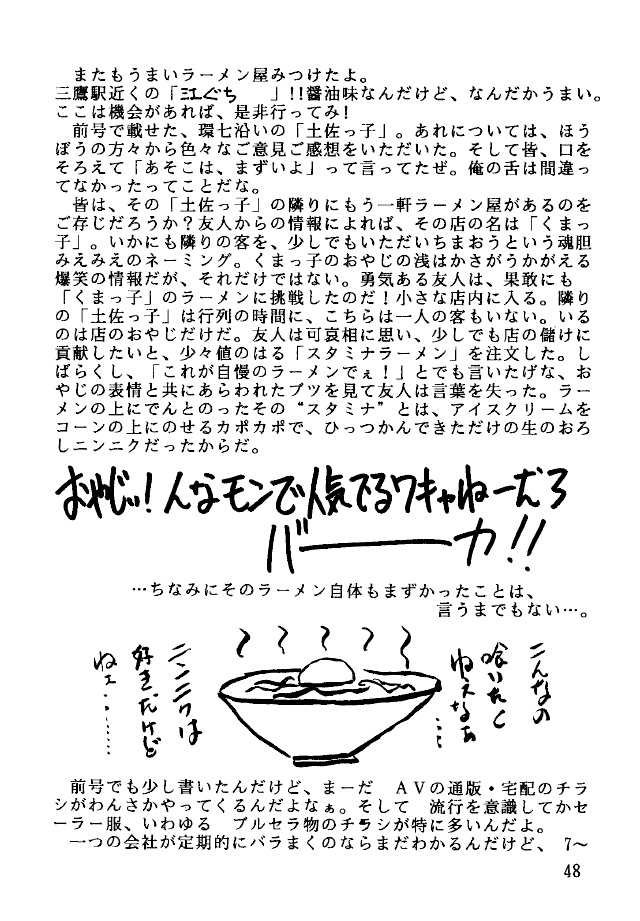 またもうまいラーメン屋みつけたよ。
三鷹駅近くの「江ぐち　　」!!醤油味なんだけど、なんだかうまい。
ここは機会があれば、是非行ってみ!
前号で載せた、環七沿いの「土佐っ子」。あれについては、ほう
ぼうの方々から色々なご意見ご感想をいただいた。そして皆、口を
そろえて「あそこは、まずいよ」って言ってたぜ。俺の舌は間違っ
てなかったってことだな。
皆は、その「土佐っ子」の隣りにもう一軒ラーメン屋があるのを
ご存じだろうか?友人からの情報によれば、その店の名は「くまっ
子」。いかにも隣りの客を、少しでもいただいちまおうという魂胆
みえみえのネーミング。くまっ子のおやじの浅はかさがうかがえる
爆笑の情報だが、それだけではない。勇気ある友人は、果敢にも
「くまっ子」のラーメンに挑戦したのだ!小さな店内に入る。隣り
の「土佐っ子」は行列の時間に、こちらは一人の客もいない。いる
のは店のおやじだけだ。友人は可哀相に思い、少しでも店の儲けに
貢献したいと、少々値のはる「スタミナラーメン」を注文した。し
ばらくし、「これが自慢のラーメンでぇ!」とでも言いたげな、お
やじの表情と共にあらわれたブツを見て友人は言葉を失った。ラー
メンの上にでんとのったその“スタミナ”とは、アイスクリームを
コーンの上にのせるカポカポで、ひっつかんできただけの生のおろ
しニンニクだったからだ。
おやじッ!んなモンで人気でるワキャねーだろ
バーーーカ!!
…ちなみにそのラーメン自体もまずかったことは、
言うまでもない…。
こんなの
喰いたく
ねぇなぁ
…
ニンニクは
好きだけど
ねェ………
前号でも少し書いたんだけど、まーだ　AVの通販・宅配のチラ
シがわんさかやってくるんだよなぁ。そして　流行を意識してかセ
ーラー服、いわゆる　ブルセラ物のチラシが特に多いんだよ。
一つの会社が定期的にバラまくのならまだわかるんだけど、7〜
48